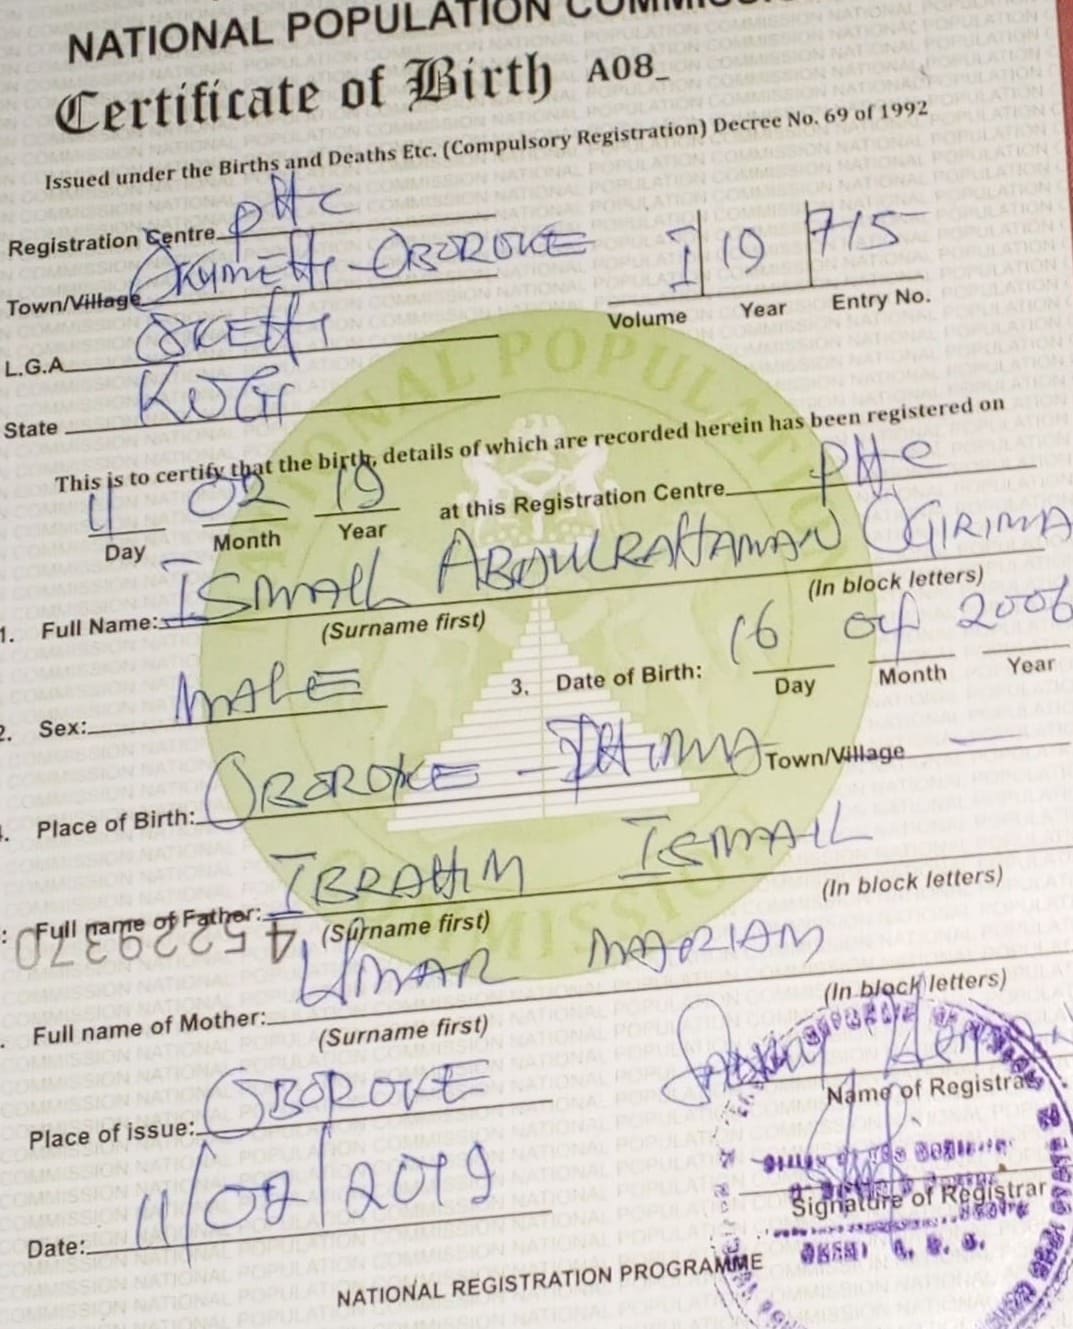 NATIONAL POPULATION COMMISSION
Certificate of Birth A08_
Issued under the Births and Deaths Etc. (Compulsory Registration) Decree No. 69 of 1992
Registration Centre PHC
Town/Village OBOROKE
L.G.A
State KOGI
I 19 715
Volume Year Entry No.
This is to certify that the birth, details of which are recorded herein has been registered on
11 02 19 at this Registration Centre PHC
Day Month Year
1. Full Name: ISMAIL ABDULRAHAMAN OGIRIMA
(Surname first) (In block letters)
2. Sex: MALE 3. Date of Birth: 16 04 2006
Day Month Year
Place of Birth: OBOROKE - IHIMA Town/Village —
Full name of Father: IBRAHIM ISMAIL
(Surname first) (In block letters)
4522937
Full name of Mother: UMAR MARIAM
(Surname first) (In block letters)
Name of Registrar
Place of issue: OBOROKE
Signature of Registrar
Date: 11 02 2019
NATIONAL REGISTRATION PROGRAMME